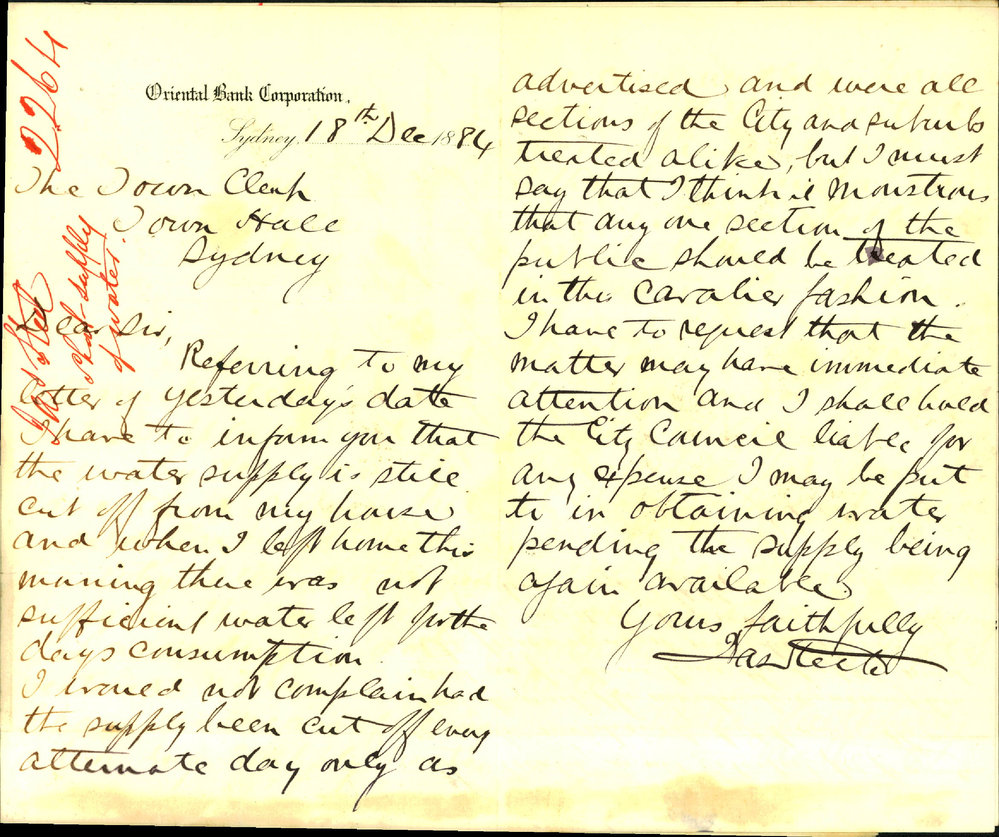 2264
Oriental Bank Corporation,
Sydney, 18th Dec 1884
The Town Clerk
Town Hall
Sydney
short supply
of water.
Dear Sir,
Referring to my
letter of yesterday's date
I have to inform you that
the water supply is still
cut off from my house
and when I left home this
morning there was not
sufficient water left for the
days consumption.
I would not complain had
the supply been cut off every
alternate day only as
advertised and were all
sections of the City and suburbs
treated alike, but I must
say that I think it monstrous
that any one section of the
public should be treated
in this cavalier fashion.
I have to request that the
matter may have immediate
attention and I shall hold
the City Council liable for
any expense I may be put
to in obtaining water
pending the supply being
again available.
Yours faithfully